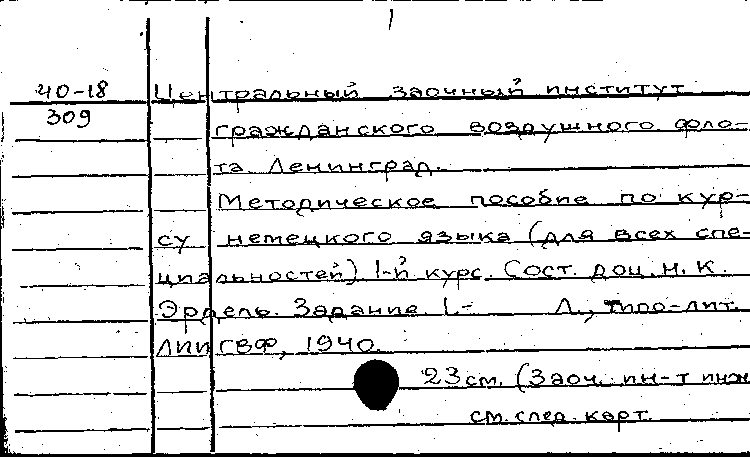 1
40-18
309
Центральный заочный институт
гражданского воздушного фло-
та. Ленинград.
Методическое пособие по кур-
су немецкого языка (для всех спе-
циальностей) 1-й курс. Сост. доц. Н. К.
Эрдель. Задание 1.- Л., типо-лит.
ЛИИ ГВФ, 1940.
23 см. (Заоч. ин-т инж
см. след. карт.